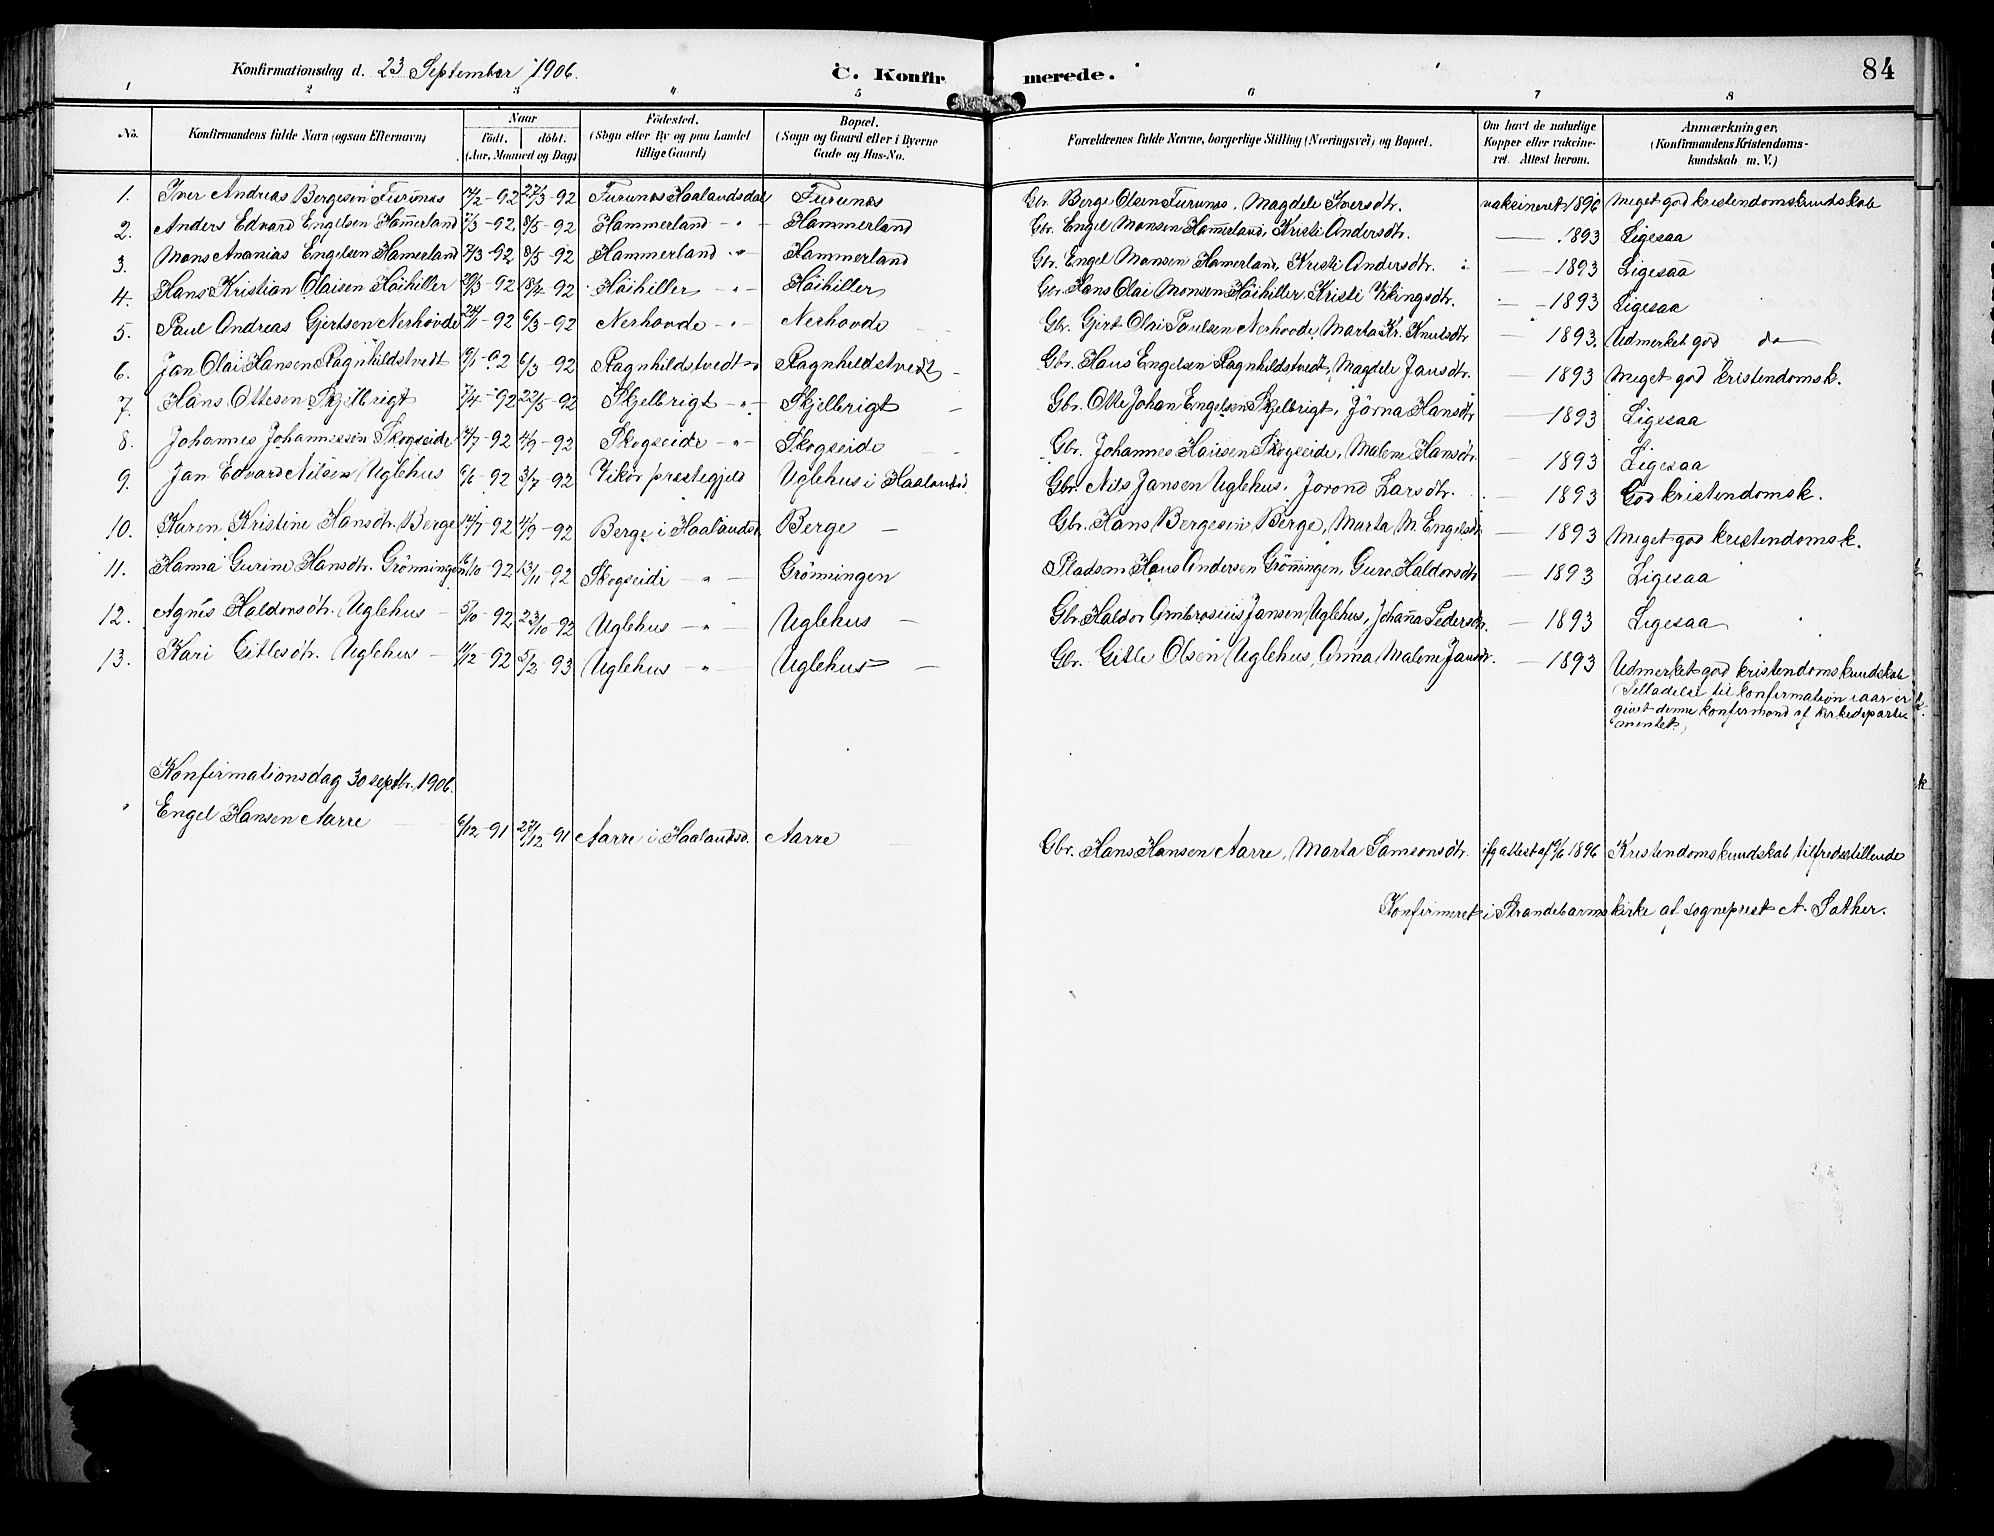 Konfirmationsdag d. 23 September 1906.
C. Konfirmerede.
84
1 2 3 4 5 6 7 8
No.
Konfirmandens fulde Navn (ogsaa Efternavn)
Naar
født. døbt.
(Aar, Maaned og Dag)
Fødested.
(Sogn eller By og paa Landet
tillige Gaard)
Bopæl.
(Sogn og Gaard eller i Byerne
Gade og Hus-No.
Forældrenes fulde Navne, borgerlige Stilling (Næringsvei) og Bopæl.
Om havt de naturlige
Kopper eller vaccine-
ret. Attest herom.
Anmærkninger,
(Konfirmandens Kristendoms-
kundskab m. V.)
1. Iver Andreas Bergesen Furunæs 17/2-92 27/3-92 Furunæs Haalandsdal Furunæs Gbr. Berge Olsen Furunæs, Magdele Iversdtr. vaksineret 1896 Meget god kristendomskundskab
2. Anders Edvard Engelsen Hammerland 7/3-92 8/5-92 Hammerland - " - Hammerland Gbr. Engel Monsen Hammerland, Kristi Andersdtr. — 1893 Ligesaa
3. Mons Ananias Engelsen Hammerland 7/3-92 8/5-92 Hammerland - " - Hammerland Gbr. Engel Monsen Hamerland, Kristi Andersdtr. — 1893 Ligesaa
4. Hans Kristian Olaisen Høihiller 20/3-92 18/4-92 Høihiller - " - Høihiller Gbr. Hans Olai Monsen Høihiller, Kristi Vikingsdtr. — 1893 Ligesaa
5. Paul Andreas Gjertsen Nerhovde 24/1-92 6/3-92 Nerhovde - " - Nerhovde Gbr. Gjert Olai Paulsen Nerhovde, Marta Kr. Knutsdtr — 1893. Udmerket god do
6. Jan Olai Hansen Ragnhildstvedt /1-92 6/3-92 Ragnhildstvedt - " Ragnhildstvedt - Gbr. Hans Engelsen Ragnhildstvedt, Magdele Jansdtr. — 1893 Meget god kristendomsk.
7. Hans Ottesen Skjelbrigt 7/4-92 22/5-92 Skjelbrigt - " - Skjelbrigt - Gbr. Otte Johan Engelsen Skjelbrigt, Jörna Hansdtr — 1893 Ligesaa
8. Johannes Johannessen Skogseide /7-92 4/9-92 Skogseide - " - Skogseide Gbr. Johannes Hansen Skogseide, Malene Hansdtr. — 1893 Ligesaa
9. Jan Edvard Nilsen Uglehus 6/6-92 3/7-92 Vikör præstegjeld Uglehus i Haalandsd. Gbr. Nils Jansen Uglehus, Jorond Larsdtr. — 1893 God kristendomsk.
10. Karen Kristine Hansdtr. Berge /7-92 4/9-92 Berge i Haalandsd. Berge — Gbr. Hans Bergesen Berge, Marta M. Engelsdtr — 1893 Meget god kristendomsk.
11. Hanna Gurine Hansdtr. Grönningen 16/10-92 13/11-92 Skogseide - " - Grönningen Pladsm Hans Andersen Grönningen, Guro Haldorsdtr — 1893 Ligesaa
12. Agnes Haldorsdtr. Uglehus - 5/10-92 23/10-92 Uglehus - " - Uglehus - Gbr Haldor Ambrosius Jansen Uglehus, Johanna Pedersdtr. — 1893 Ligesaa
13. Kari Gitlesdtr. Uglehus - 11/12-92 5/2-93 Uglehus - " - Uglehus - Gbr. Gitle Olsen Uglehus, Anna Malene Jansdtr. — 1893 Udmerket god kristendomskundskab
Tilladelse til konfirmation iaar er
givet denne konfirmand af Kirkedeparte
mentet.
Konfirmationsdag 30 septbr. 1906.
" Engel Hansen Aarre — 6/12-91 27/12-91 Aarre i Haalandsd. Aarre Gbr. Hans Hansen Aarre, Marta Samsonsdtr. ifg attest af 9/6 1896 Kristendomskundskab tilfredsstillende
Konfirmeret i Strandebarms kirke af sogneprest A. Sather.